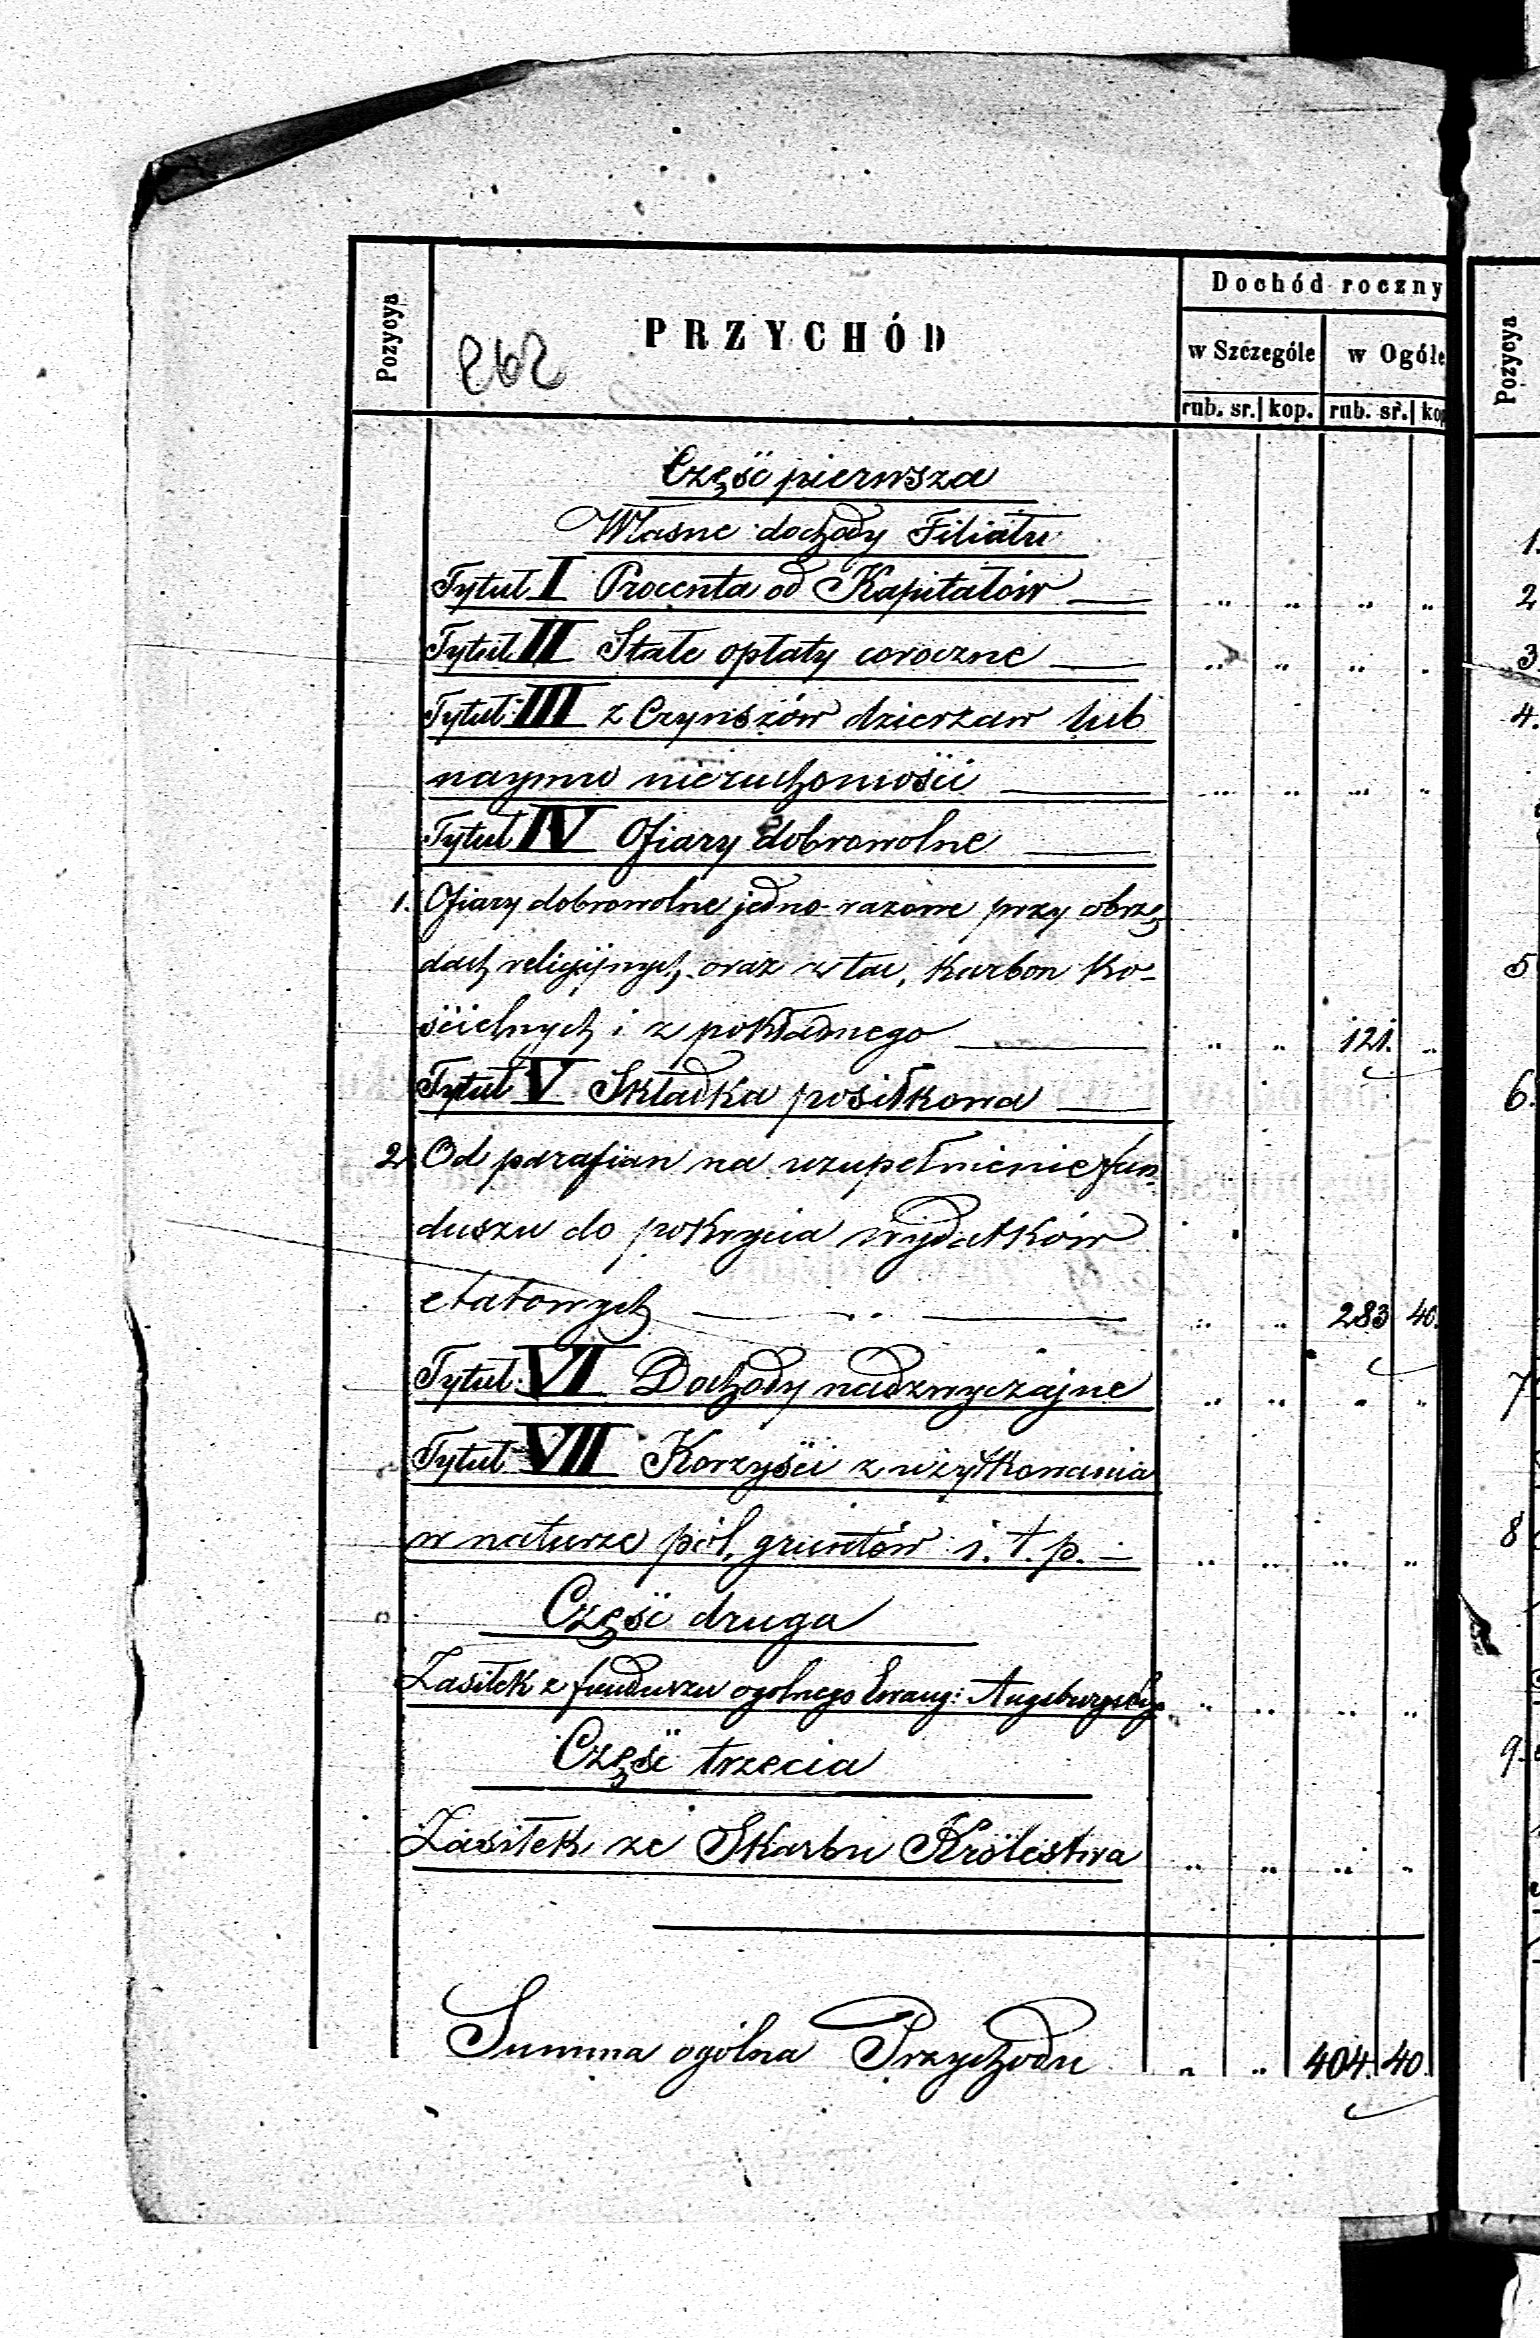 Dochód roczny
Pozycya
PRZYCHÓD
w Szczególe w Ogóle
rub. sr. kop. rub. sr. kop
Pozycya
Część pierwsza
Własne dochody Filiału
Tytuł I Procenta od Kapitałów — " " " "
Tytuł II Stałe opłaty coroczne — " " " "
Tytuł III z Czynszów dzierżaw lub
naymu nieruchomości — " " " "
Tytuł IV Ofiary dobrowolne —
1. Ofiary dobrowolne jedno-razowe przy obrzę
dach religijnych, oraz z tac, Karbon Ko-
ścielnych i z pokładnego — " " 121. "
Tytuł V Składka posiłkowa —
2. Od parafian na uzupełnienie fun-
duszu do pokrycia wydatków
etatowych — " " 283 40.
Tytuł VI Dochody nadzwyczajne " " " "
Tytuł VII Korzyści z użytkowania
w naturze pól, gruntów i. t. p. — " " " "
Część druga
Zasiłek z funduszu ogolnego Ewang: Augsburgskego " " " "
Część trzecia
Zasiłek ze Skarbu Królestwa " " " "
Summa ogólna Przychodu " " 404. 40.
1.
2
3.
4.
5
6.
7
8
9.